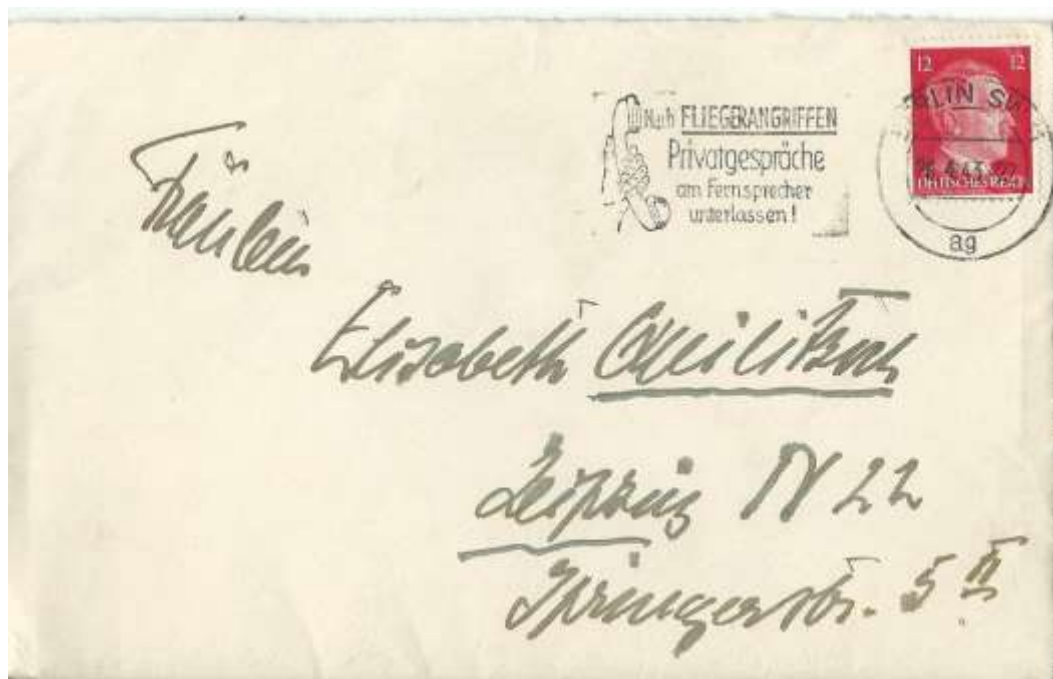 12 12
Nach FLIEGERANGRIFFEN
Privatgespräche
am Fernsprecher
unterlassen!
DEUTSCHES REICH
ag
Fräulein
Elisabeth
Leipzig N 22
Springerstr. 5 II